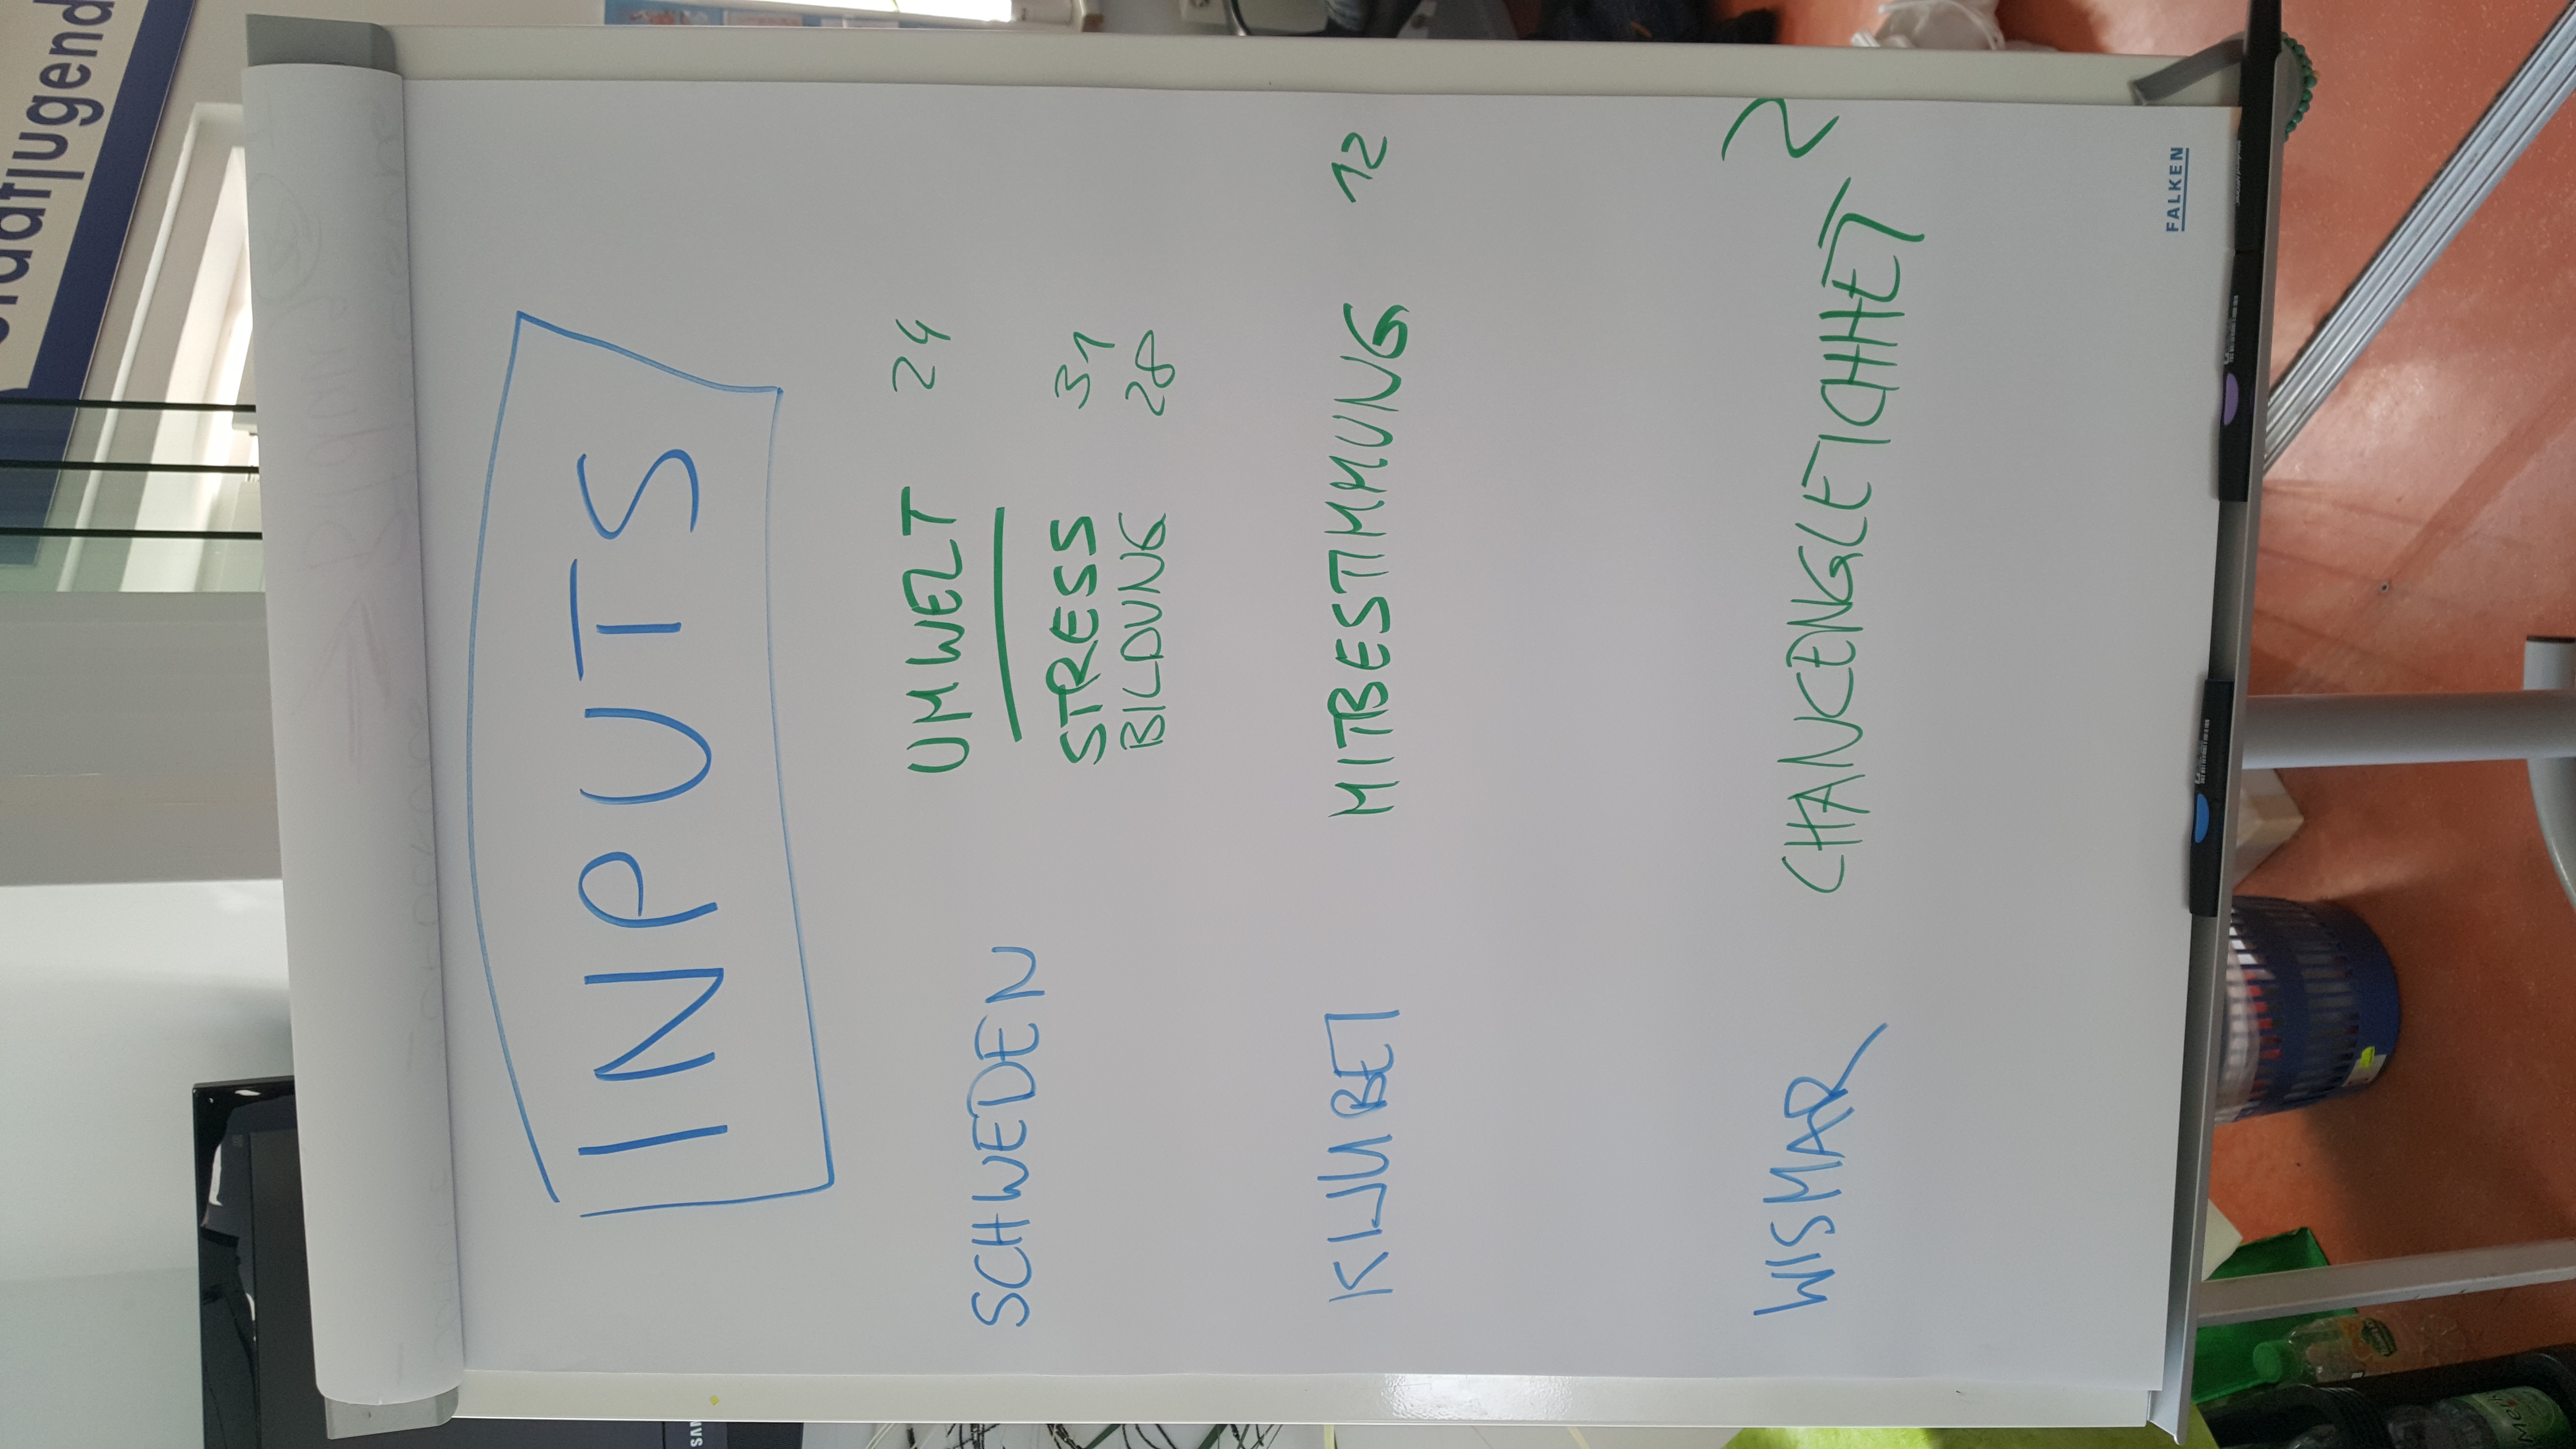 INPUTS
UMWELT 24
SCHWEDEN
STRESS 31
BILDUNG 28
KIJUBET MITBESTIMMUNG 12
WISMAR CHANCENGLEICHHEIT 2
FALKEN